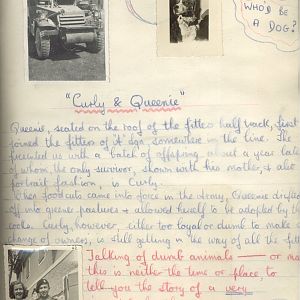 WHO'D BE
A DOG?
"Curly & Queenie"
Queenie, seated on the roof of the fitter half track, first
joined the fitters of 'A' Sqn somewhere in the line. She
presented us with a batch of offspring about a year late
of whom the only survivor, shown with his mother, & also
portrait fashion, is Curly.
When food cuts came into force in the Army, Queenie drifted
off into greener pastures & allowed herself to be adopted by the
cooks. Curly, however, either too loyal or dumb to make a
change of owners, is still getting in the way of all the fitt
Talking of dumb animals — or ma
this is neither the time or place, to
tell you the story of a very